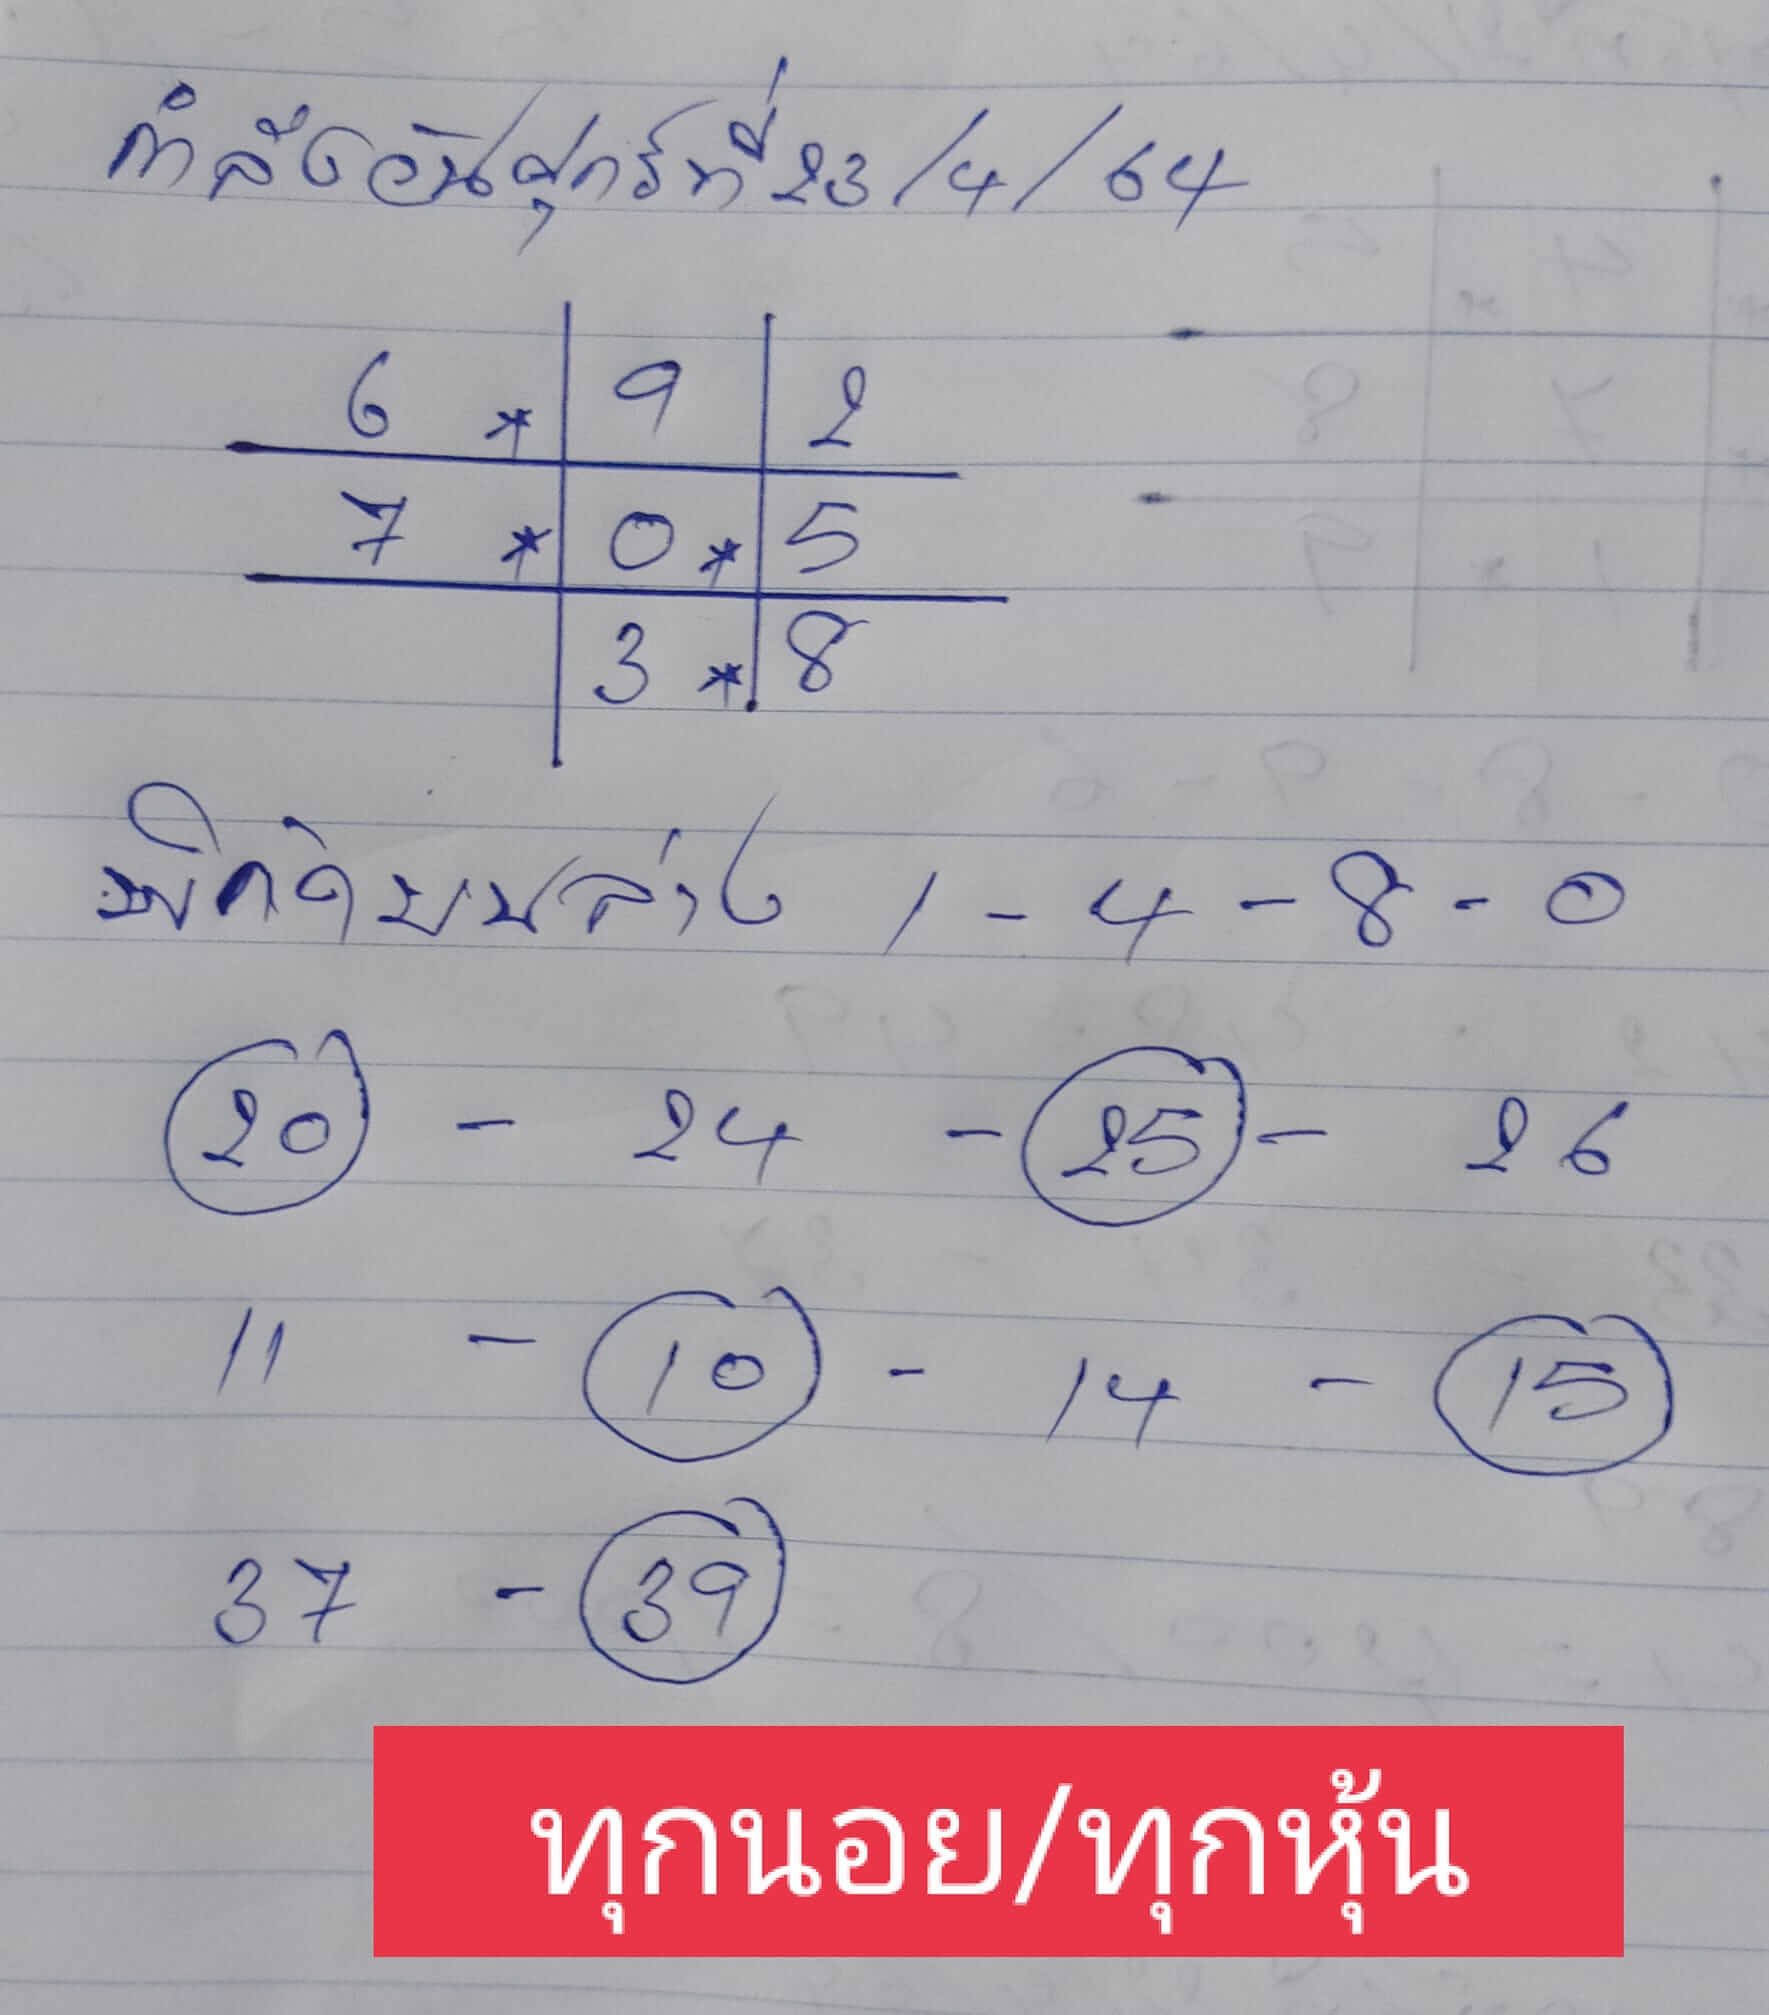 กำลังวันศุกร์ที่ 23/4/64
6 * 9 2
7 * 0 * 5
3 * 8
พิกัดบนล่าง 1 - 4 - 8 - 0
20 - 24 - 25 - 26
11 - 10 - 14 - 15
37 - 39
ทุกนอย/ทุกหุ้น